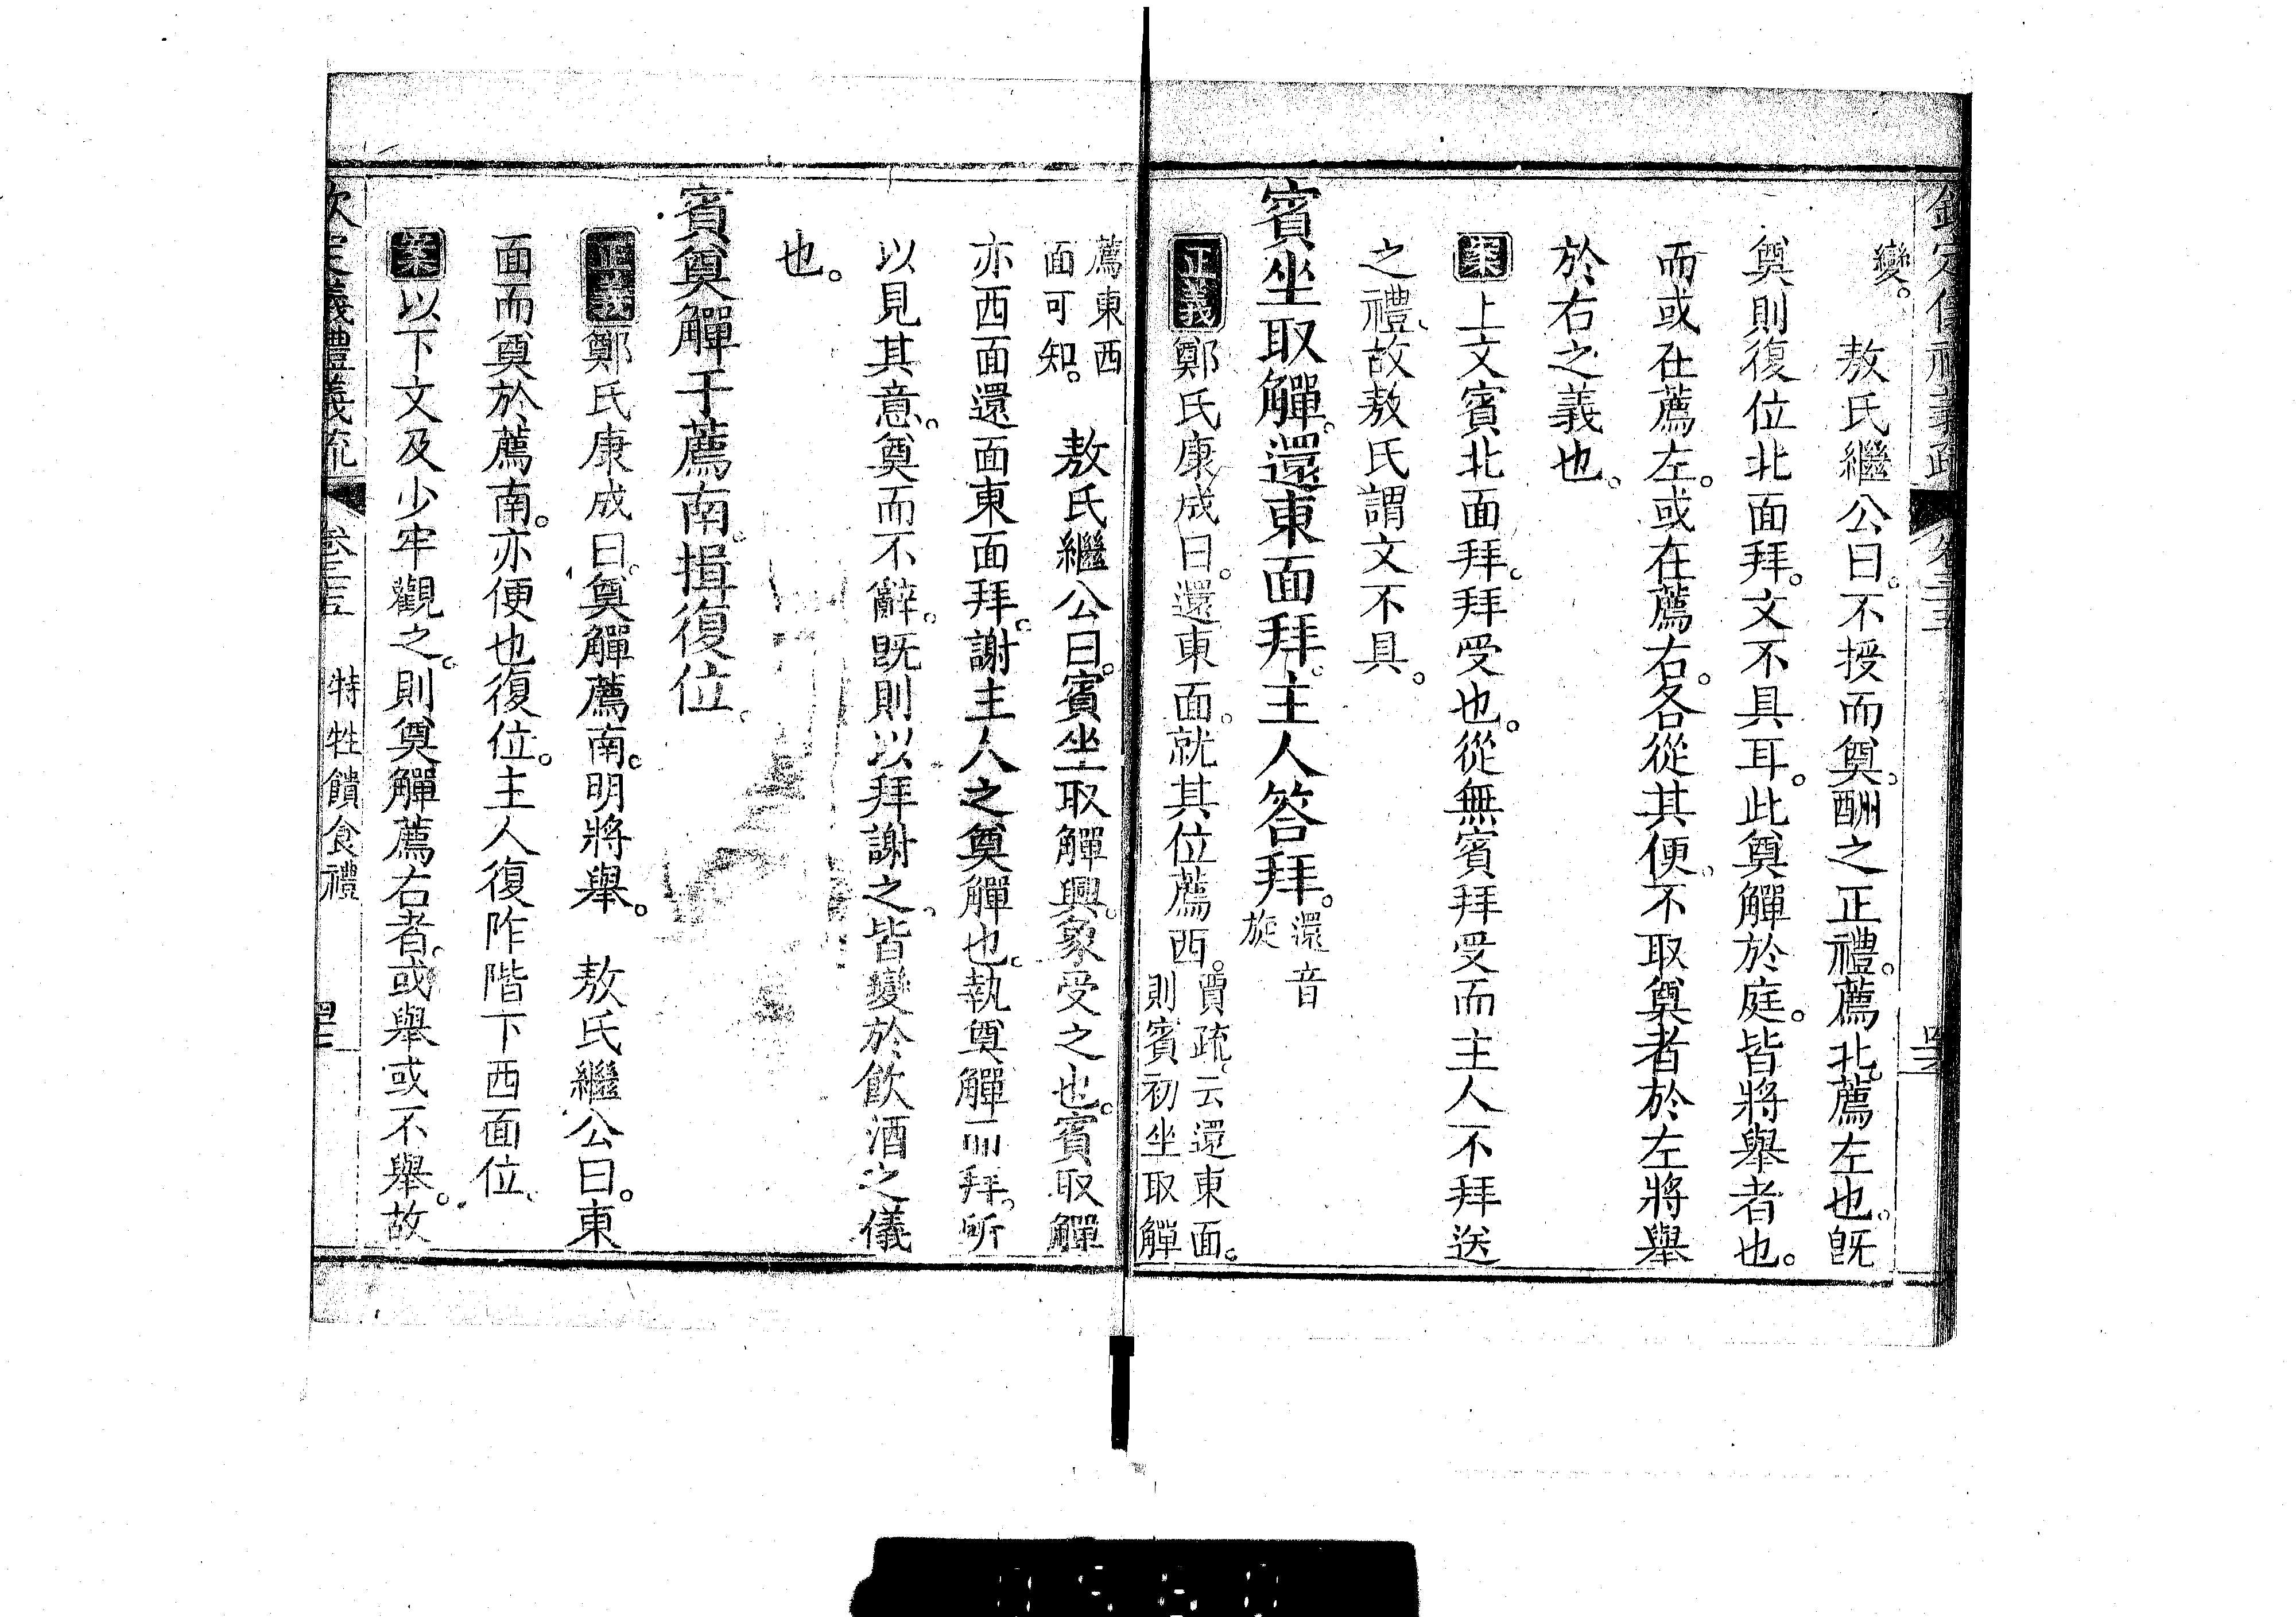 變。
敖氏繼公曰。不授而奠。酬之正禮。薦北。薦左也。既
奠則復位北面拜。文不具耳。此奠觶於庭。皆將舉者也。
而或在薦左。或在薦右。各從其便。不取奠者於左將舉
於右之義也。
案上文賓北面拜。拜受也。從無賓拜受而主人不拜送
之禮、故敖氏謂文不具。
賓坐取觶。還東面拜。主人答拜。還音
旋
正義鄭氏康成曰。還東面。就其位薦西。賈疏。云還東面。
則賓初坐取觶
薦東西
面可知。
敖氏繼公曰。賓坐取觶興。象受之也。賓取觶
亦西面還面東面拜。謝主人之奠觶也。執奠觶而拜。所
以見其意。奠而不辭。既則以拜謝之。皆變於飲酒之儀
也。
賓奠觶于薦南。揖復位。
正義鄭氏康成曰。奠觶薦南。明將舉。 敖氏繼公曰。東
面而奠於薦南。亦便也復位。主人復阼階下西面位、
案以下文及少牢觀之。則奠觶薦右者。或舉或不舉。故
欽定義禮義疏 卷三五 特牲饋食禮